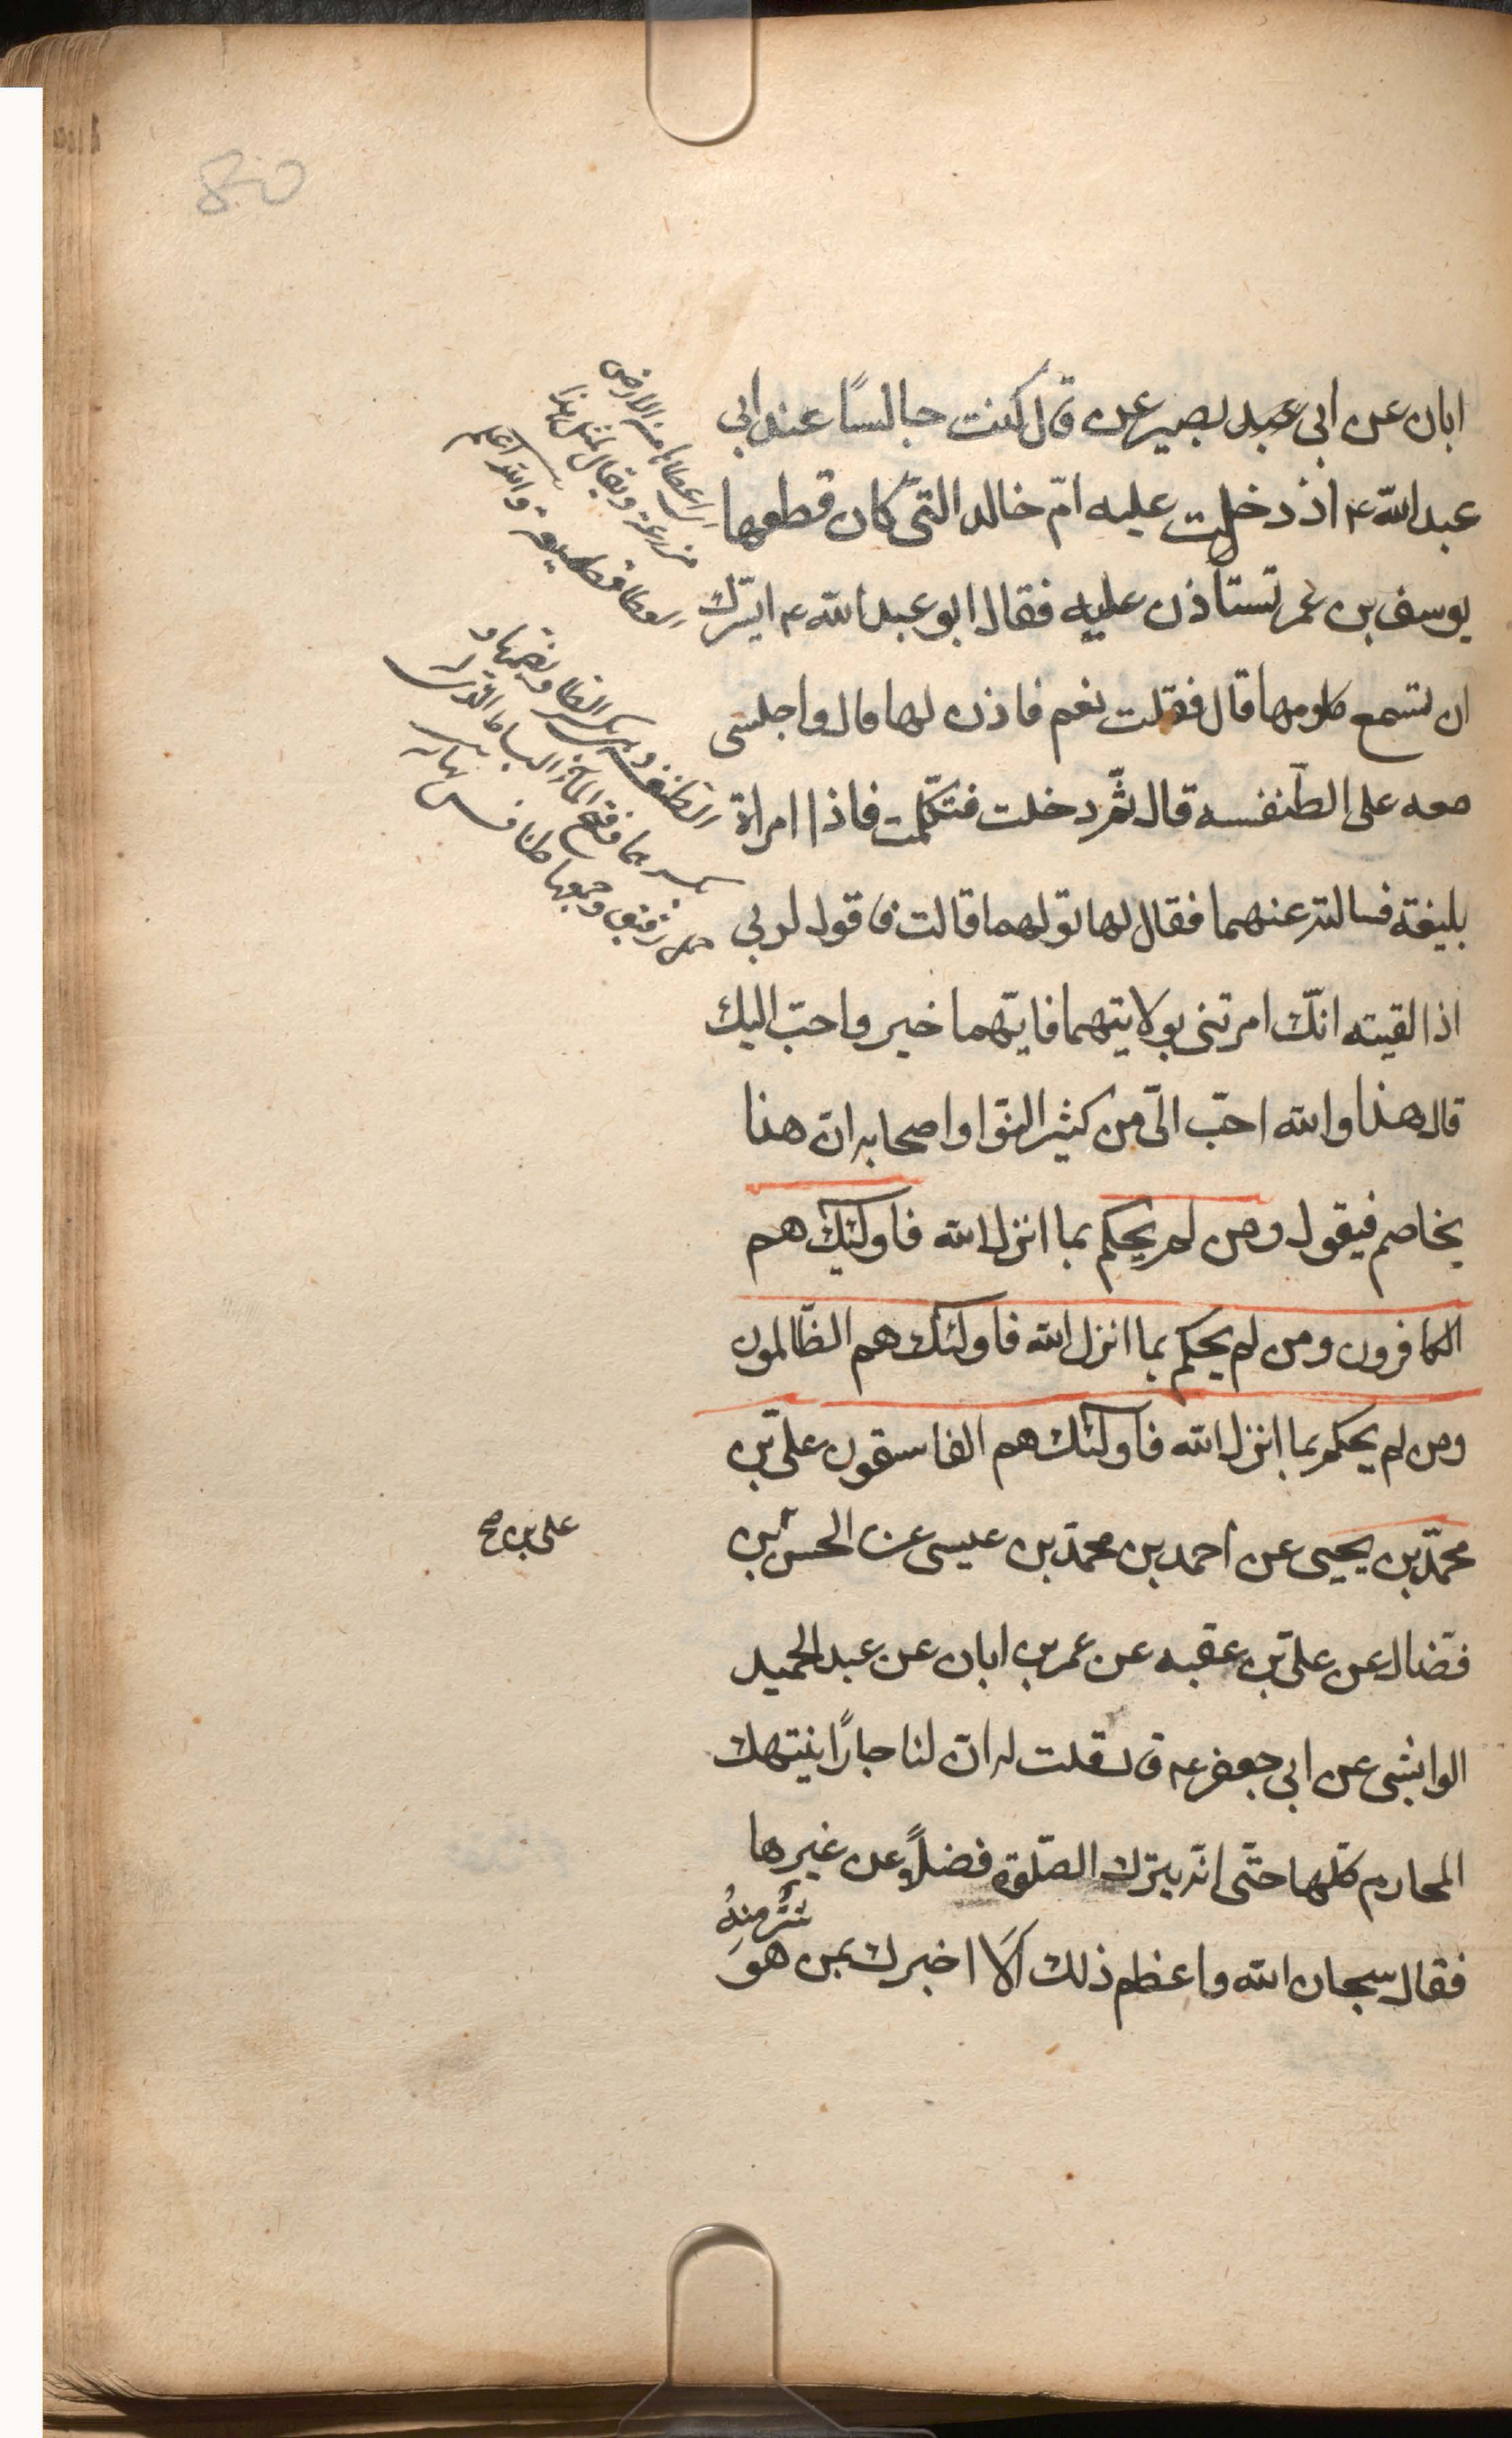 ابان عن ابى عبد بصير عن قال كنت جالسًا عند ابى
عبد الله ع اذ دخلت عليه امّ خالد التى كان قطعها
يوسف بن عمر تستأذن عليه فقال ابو عبد الله ع ايسّرك
ان تسمع كلومها قال فقلت نعم فاذن لها قال واجلسنى
معه على الطّنفسه قال ثمّ دخلت فتكلّمت فاذا امراة
بليغة فسالته عنهما فقال لها تولهما قالت فاقول لربى
اذا لقيته انّك امرتنى بولايتهما فايّهما خير واحبّ اليك
قال هذا والله احبّ الىّ من كثير النوّا واصحابه انّ هذا
يخاصم فيقول ومن لم يحكم بما انزل الله فاولئك هم
الكافرون ومن لم يحكم بما انزل الله فاولئك هم الظّالمون
ومن لم يحكم بما انزل الله فاولئك هم الفاسقون على بن
محمّد بن يحيى عن احمد بن محمد بن عيسى عن الحسن بن
على بن صح
فضّال عن على بن عقبه عن عمر بن ابان عن عبد الحميد
الوابشى عن ابى جعفر ع قال قلت له انّ لنا جارًا ينتهك
المحارم كلّها حتّى انّه يترك الصّلوة فضلًا عن غيرها
فقال سبحان الله واعظم ذلك اَلَا اخبرك بمن هوَ
شرّ منهُ
اى اعطاها من الارض
مزرعة ويقال لمثل هذا
العطا قطيعة والله اعلم
الطنفسه وبكسر الفا وبضمها و
بكسر الطا وفتح الفا البساط الذى له
خمل رقيق وجمعها طنافس نهايه